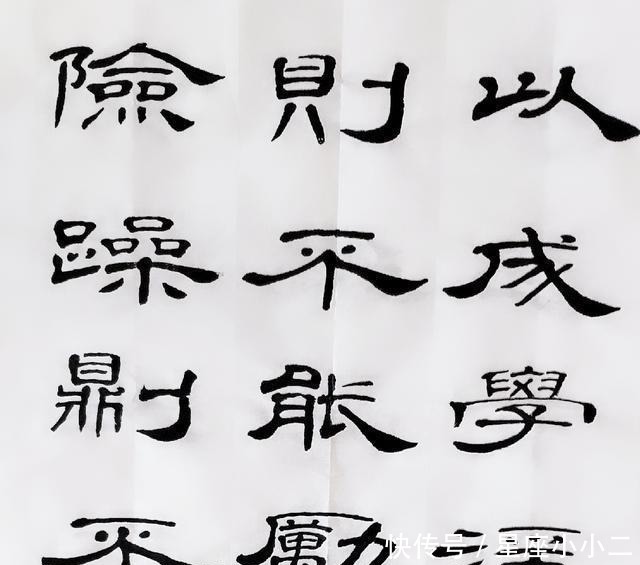 以成學
則不能勵
險躁則不
快传号 / 星座小小二